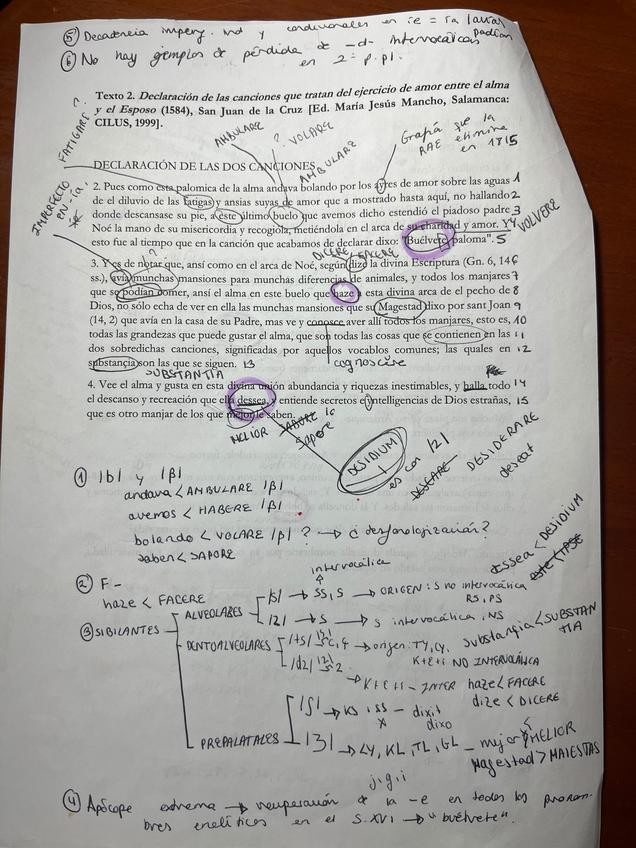 ⑤ Decadencia imperf. ind y condicionales en ie = ía (avía
podían
⑥ No hay ejemplos de pérdida de -d- intervocálicas
en 2ª p. pl.
Texto 2. Declaración de las canciones que tratan del ejercicio de amor entre el alma
y el Esposo (1584), San Juan de la Cruz [Ed. María Jesús Mancho, Salamanca:
CILUS, 1999].
?
FATIGARE
AMBULARE
? VOLARE
AMBULARE
Grafía que la
RAE elimina
en 1815
IMPERFECTO
en -ía
DECLARACIÓN DE LAS DOS CANCIONES
2. Pues como esta palomica de la alma andava bolando por los ayres de amor sobre las aguas 1
de el diluvio de las fatigas y ansias suyas de amor que a mostrado hasta aquí, no hallando 2
donde descansase su pie, a este último buelo que avemos dicho estendió el piadoso padre 3
Noé la mano de su misericordia y recogióla, metiéndola en el arca de su charidad y amor. Y 4
esto fue al tiempo que en la canción que acabamos de declarar dixo: "Buélvete, paloma". 5
VOLVERE
DICERE
FACERE
?
3. Y es de notar que, ansí como en el arca de Noé, según dize la divina Escriptura (Gn. 6, 14 6
ss.), avía muchas mansiones para munchas diferencias de animales, y todos los manjares 7
que se podían comer, ansí el alma en este buelo que haze a esta divina arca de el pecho de 8
Dios, no sólo echa de ver en ella las munchas mansiones que su Magestad dixo por sant Joan 9
(14, 2) que avía en la casa de su Padre, mas ve y conosce aver allí todos los manjares, esto es, 10
todas las grandezas que puede gustar el alma, que son todas las cosas que se contienen en las 11
dos sobredichas canciones, significadas por aquellos vocablos comunes; las quales en 12
substancia son las que se siguen. 13
cognoscere
SUBSTANTIA
4. Vee el alma y gusta en esta divina unión abundancia y riquezas inestimables, y halla todo 14
el descanso y recreación que ella dessea, y entiende secretos e intelligencias de Dios estrañas, 15
que es otro manjar de los que mejor le saben.
MELIOR
Sapere
DESIDIUM
es con |z|
DESEARE
DESIDERARE
desear
① |b| y |β|
andava < AMBULARE |β|
avemos < HABERE |β|
bolando < VOLARE |β| ? → ¿desfonologización?
saben < SAPORE
② F-
haze < FACERE
intervocálica
dessea < DESIDIUM
③ SIBILANTES
ALVEOLARES
|s| → SS, S → ORIGEN: S no intervocálica
RS, PS
|z| → S → S intervocálica, NS
DENTOALVEOLARES
|ts| → c, ç → origen: TY, CY, substangia < SUBSTANTIA
K+E+I NO INTERVOCÁLICA
|dz| → z
→ K+E+I - INTER haze < FACERE
dize < DICERE
PREPALATALES
|ʃ| → KS, SS - dixit
dixo
|ʒ| → LY, KL, TL, GL - mejor < MELIOR
Magestad > MAIESTAS
j, g, i
④ Apócope extrema → recuperación de la -e en todos los pronom-
bres enclíticos en el S. XVI → "buélvete".